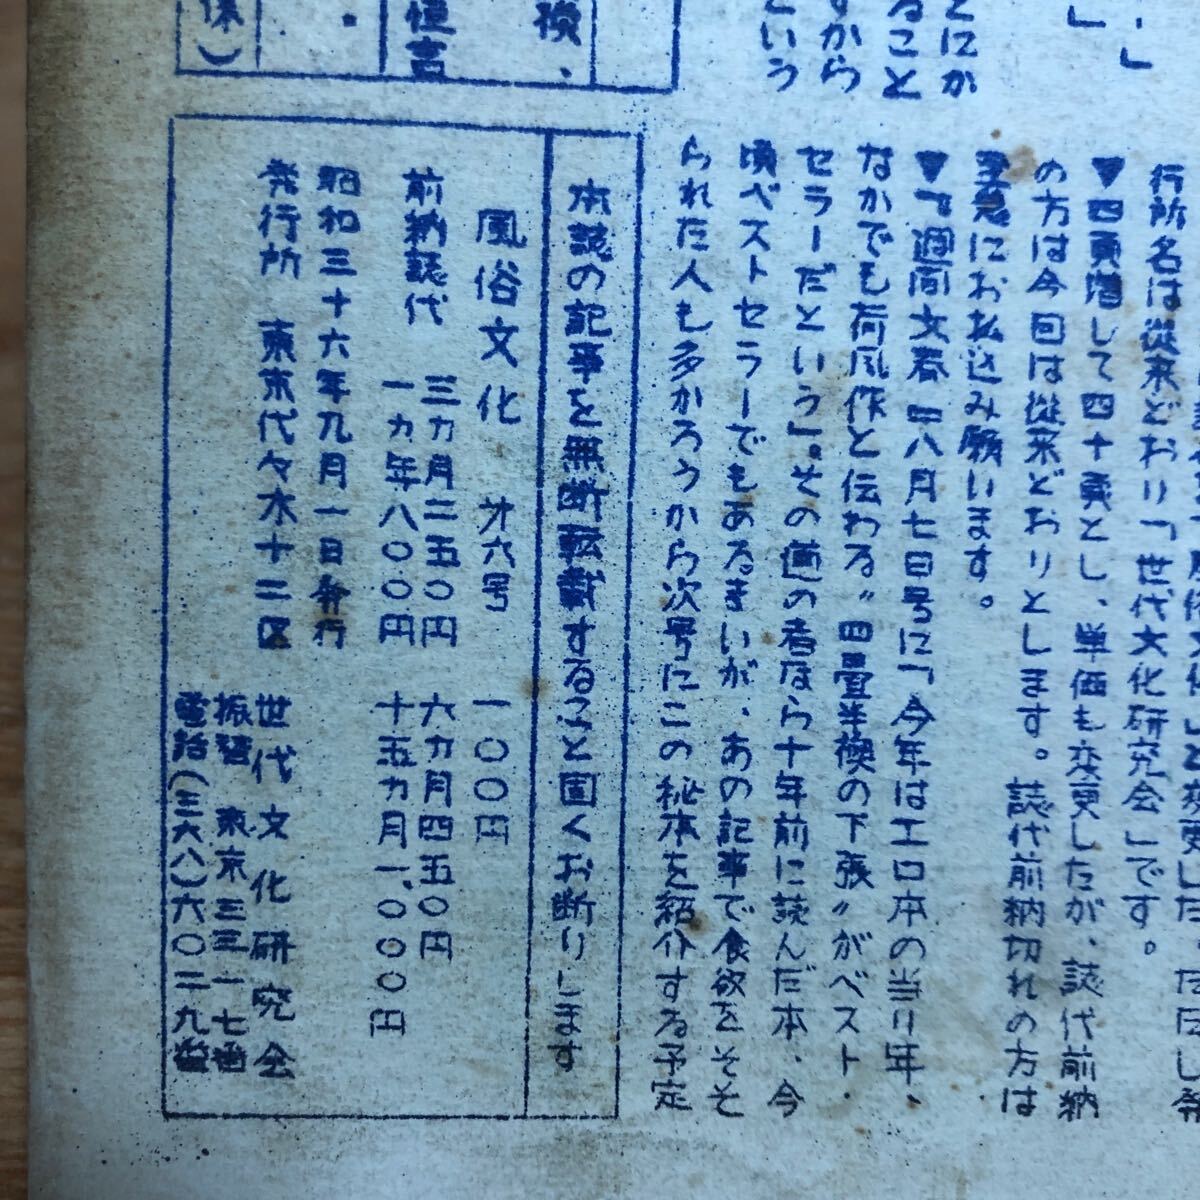 とにか
ること
すから
という
行所名は従来どおり「世代文化研究会」です。
▼四頁増して四十頁とし、単価も変更したが、誌代前納
の方は今回は従来どおりとします。誌代前納切れの方は
至急にお払込み願います。
▼『週間文春』八月七日号に「今年はエロ本の当り年、
なかでも荷風作と伝わる〝四畳半襖の下張〟がベスト・
セラーだという」。その道の者なら十年前に読んだ本、今
頃ベストセラーでもあるまいが、あの記事で食欲をそそ
られた人も多かろうから次号にこの秘本を紹介する予定
本誌の記事を無断転載すること固くお断りします
風俗文化 才六号 一〇〇円
前納誌代 三カ月二五〇円 六カ月四五〇円
一カ年八〇〇円 十五カ月一、〇〇〇円
昭和三十六年九月一日発行
発行所 東京代々木十二区 世代文化研究会
振替 東京三三一七番
電話(三六八)六〇二九番